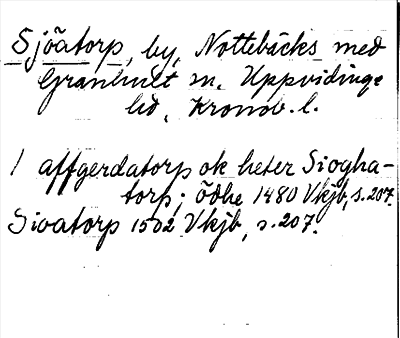 Sjöatorp, by, Nottebäcks med
Granhult sn. Uppvidinge
hd, Kronob. l.
1 affgerdatorp ok heter Siogha-
torp; ödhe 1480 Vkjb, s. 207.
Sioatorp 1502 Vkjb, s. 207.